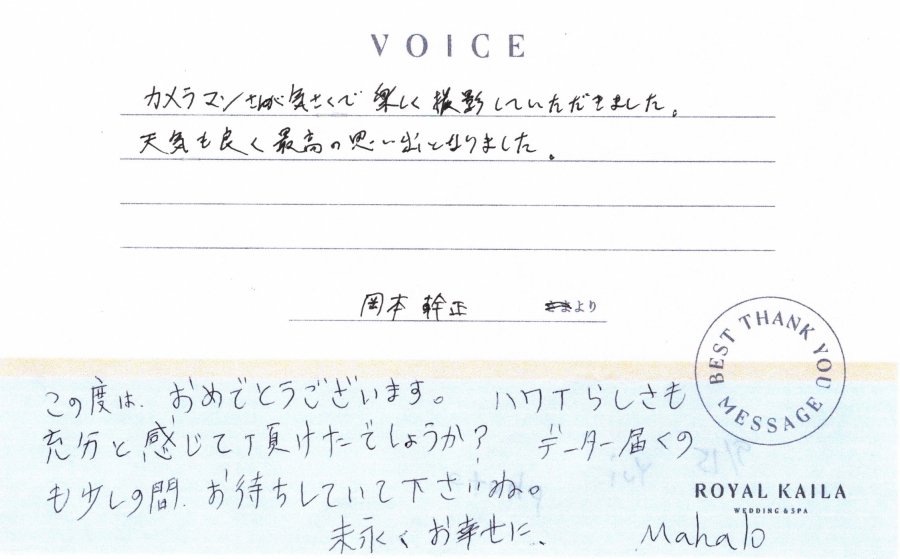 VOICE
カメラマンさんが気さくで楽しく撮影していただきました。
天気も良く最高の思い出となりました。
岡本 幹正 さまより
BEST THANK YOU MESSAGE
この度は、おめでとうございます。 ハワイらしさも
充分と感じて頂けたでしょうか? データー届くの
も少しの間、お待ちしていて下さいね。
末永くお幸せに、 Mahalo
ROYAL KAILA
WEDDING & SPA